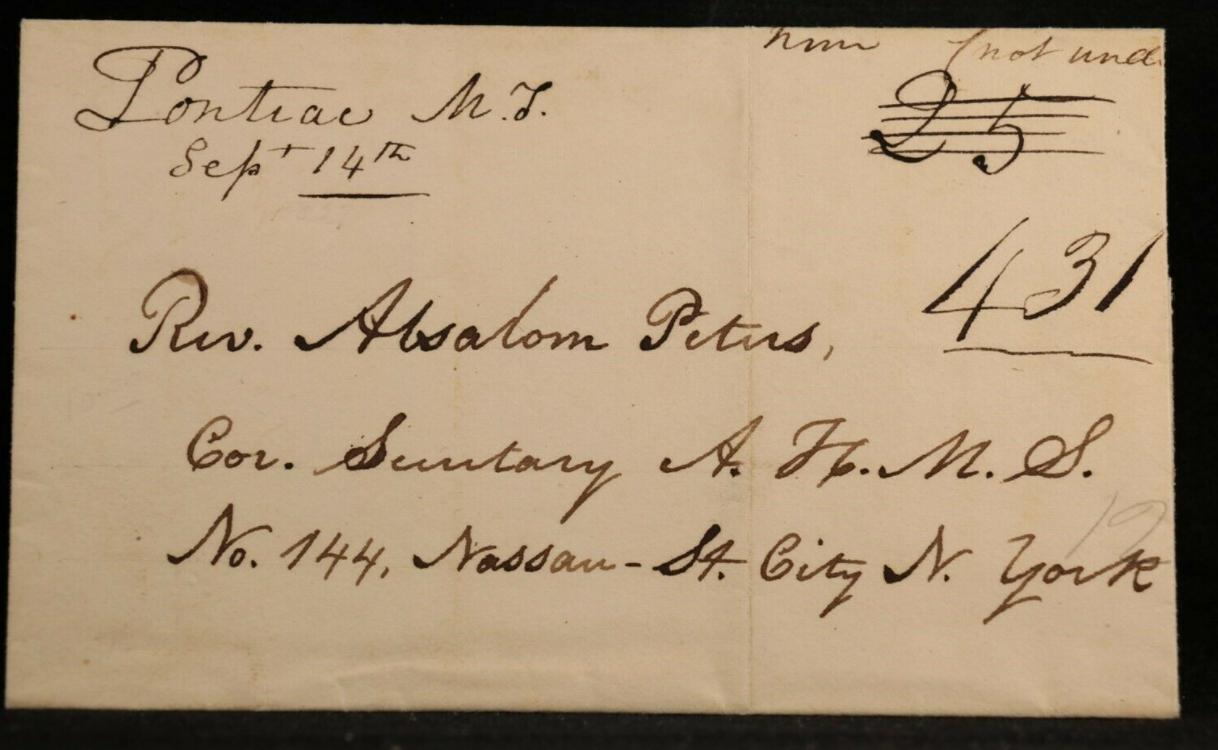 (not und
Pontiac M.T.
25
Sept 14th
431
Rev. Absalom Peters,
Cor. Secretary A. H. M. S.
No. 144, Nassau-St. City N. York
12